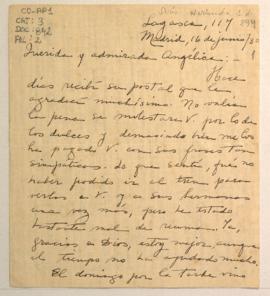 CO-AP1
CAT: 3
DOC: 842
PAG: 2
Lagasca, 117
Madrid, 16 de junio/30
Querida y admirada Angélica: -
Hace
días recibí su postal que le
agradecí muchísimo. No valía
la pena se molestara V. por lo de
los dulces y demasiado bien me los
ha pagado V. con sus frases tan
simpáticas. Lo que sentí, fué no
haber podido ir al tren para
verlos a V. y a sus hermanos
una vez más, pero he estado
bastante mal de reuma. Ya,
gracias a Dios, estoy mejor, aunque
el tiempo no ha ayudado mucho.
El domingo por la tarde vino